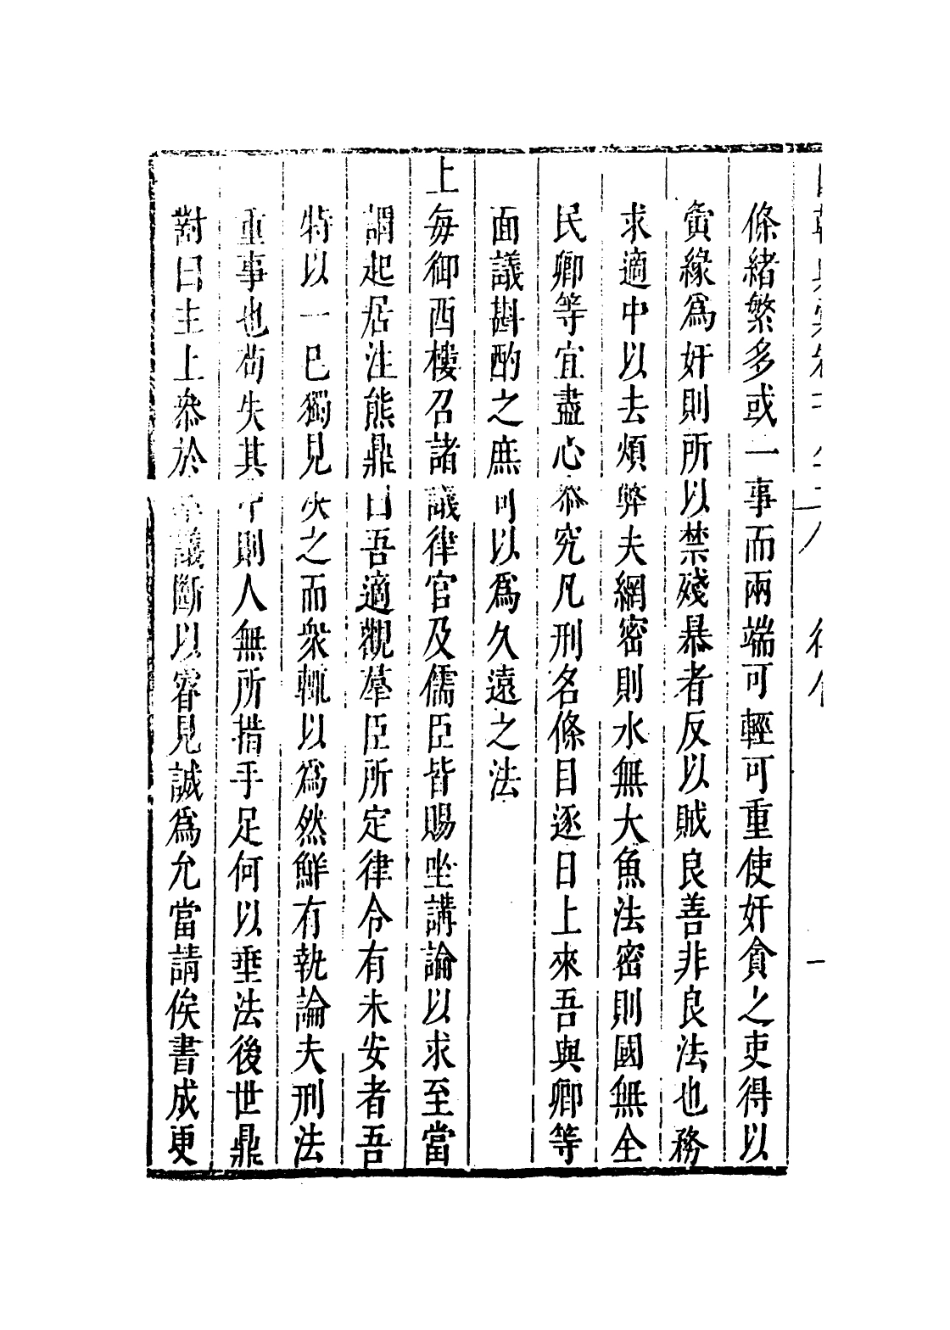 條緒繁多或一事而兩端可輕可重使奸貪之吏得以
夤緣爲奸則所以禁殘暴者反以賊良善非良法也務
求適中以去煩弊夫網密則水無大魚法密則國無全
民卿等宜盡心叅究凡刑名條目逐日上來吾與卿等
面議斟酌之庶可以爲久遠之法
上每御西樓召諸議律官及儒臣皆賜坐講論以求至當
謂起居注熊鼎曰吾適觀羣臣所定律令有未安者吾
特以一己獨見決之而衆輒以爲然鮮有執論夫刑法
重事也苟失其中則人無所措手足何以垂法後世鼎
對曰主上叅於羣議斷以睿見誠爲允當請俟書成更